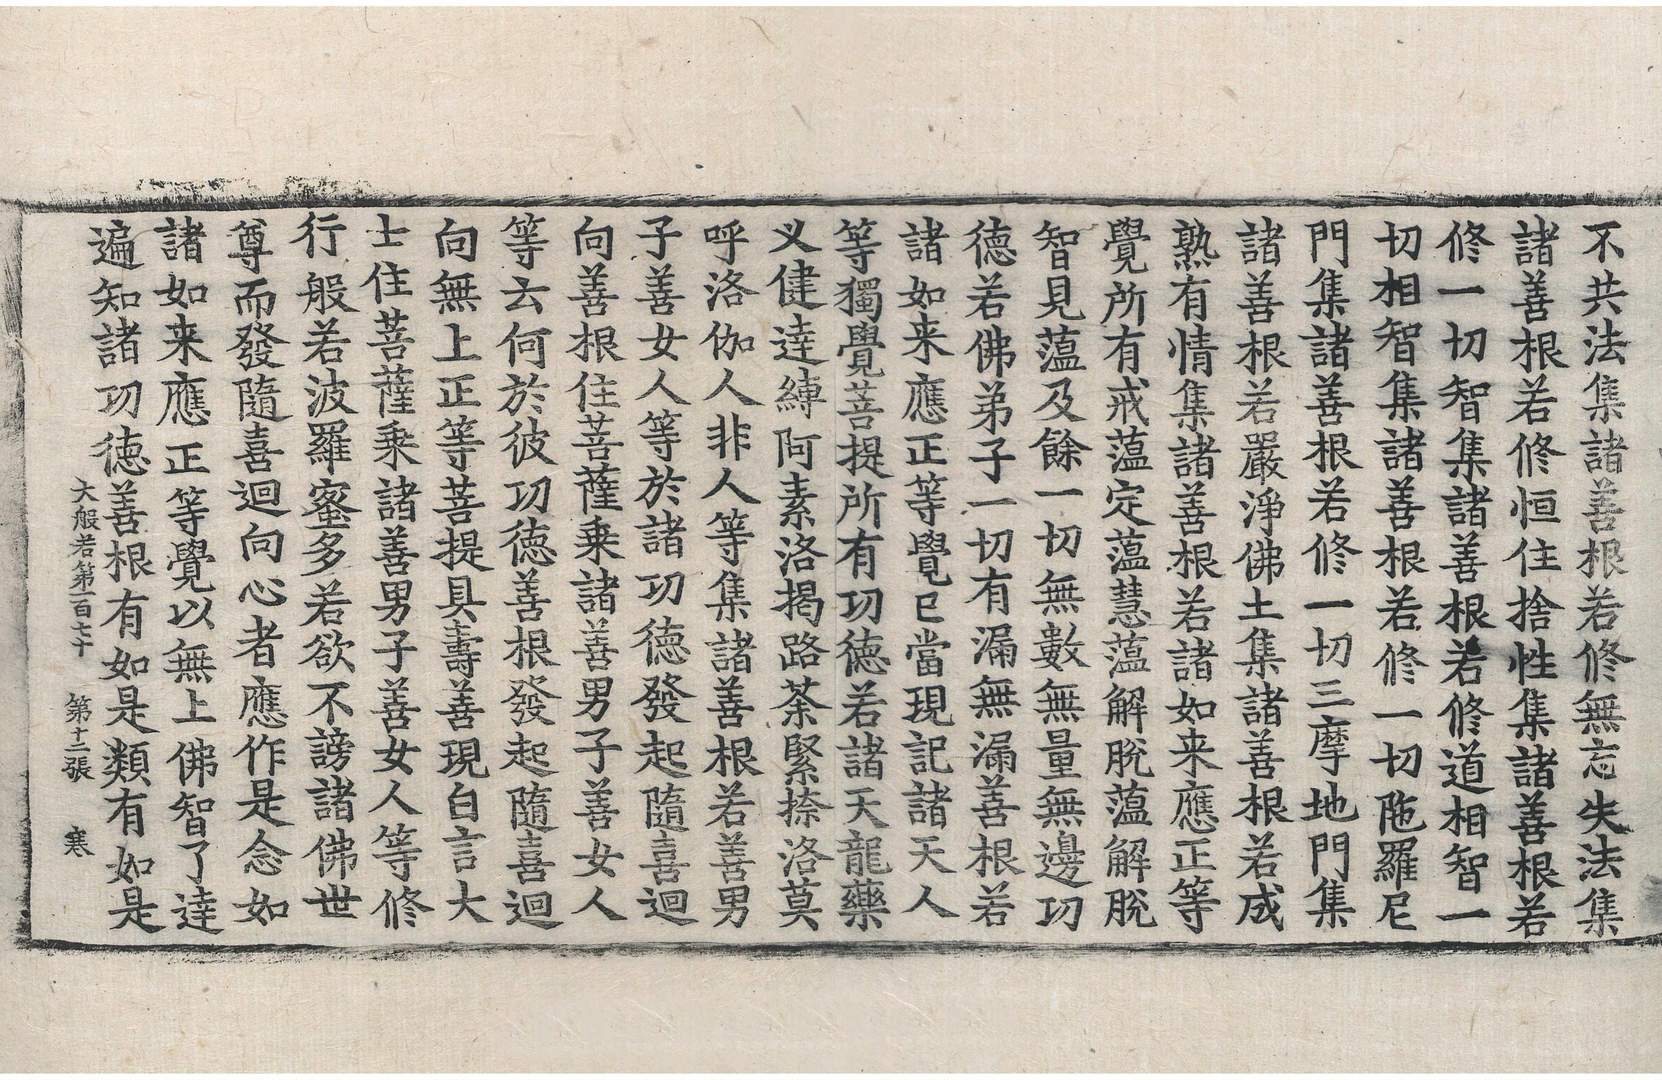 不共法集諸善根若修無忘失法集
諸善根若修恒住捨性集諸善根若
修一切智集諸善根若修道相智一
切相智集諸善根若修一切陁羅尼
門集諸善根若修一切三摩地門集
諸善根若嚴淨佛土集諸善根若成
熟有情集諸善根若諸如来應正等
覺所有戒蕰定蕰慧蕰解脫蕰解脫
智見蕰及餘一切無數無量無邊功
德若佛弟子一切有漏無漏善根若
諸如来應正等覺已當現記諸天人
等獨覺菩提所有功德若諸天龍藥
义健達縛阿素洛揭路荼緊捺洛莫
呼洛伽人非人等集諸善根若善男
子善女人等於諸功德發起隨喜迴
向善根住菩薩乘諸善男子善女人
等云何於彼功德善根發起隨喜迴
向無上正等菩提具壽善現白言大
士住菩薩乘諸善男子善女人等修
行般若波羅蜜多若欲不謗諸佛世
尊而發隨喜迴向心者應作是念如
諸如来應正等覺以無上佛智了達
遍知諸功德善根有如是類有如是
大般若第一百七十 第十二張 寒